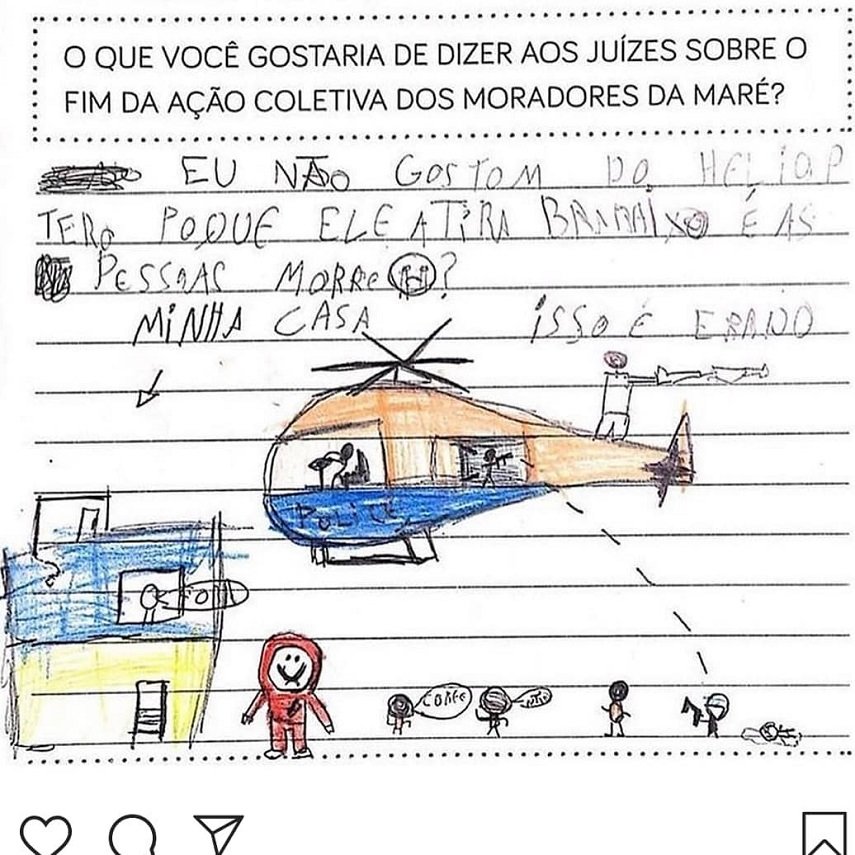 O QUE VOCÊ GOSTARIA DE DIZER AOS JUÍZES SOBRE O
FIM DA AÇÃO COLETIVA DOS MORADORES DA MARÉ?
EU NÃO GOSTOM DO HELIOP
TERO POQUE ELE ATIRA BRABAIXO É AS
PESSOAS MORRE?
MINHA CASA ISSO É ERADO
POLICE
CORRE